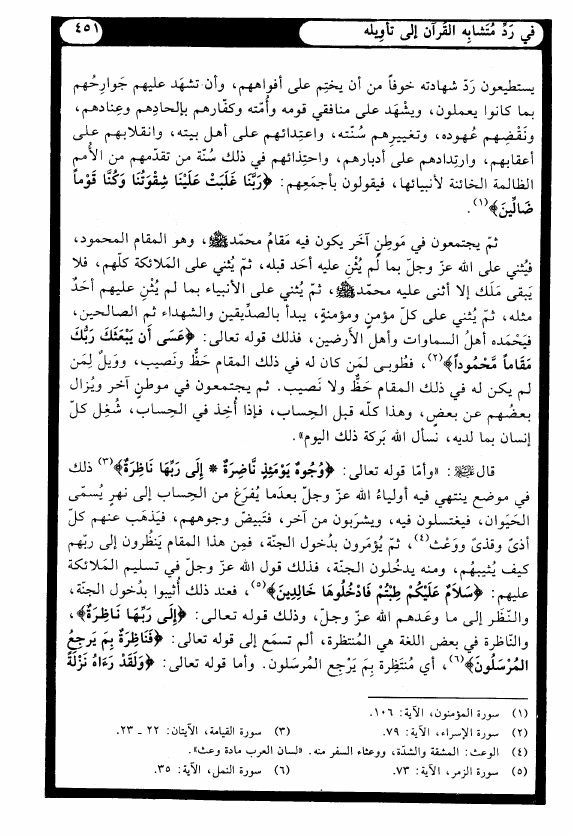 في رَدِّ مُتَشابِه القُرآن إلى تأوِيله
٤٥١
يستطيعون رَدّ شهادته خوفاً من أن يختِم على أفواههم، وأن تشهَد عليهم جَوارِحُهم
بما كانوا يعملون، ويشْهَد على منافقي قومه وأُمّته وكفّارهم بإلحادِهم وعِنادهم،
ونَقْضِهم عُهوده، وتغييرِهم سُنّته، واعتِدائهم على أهل بيته، وانقلابهم على
أعقابهم، وارتِدادهم على أدبارهم، واحتِذائهم في ذلك سُنّة من تقدّمهم من الأُمم
الظالمة الخائنة لأنبيائها، فيقولون بأجمَعِهم: ﴿رَبَّنَا غَلَبَتْ عَلَيْنَا شِقْوَتُنَا وَكُنَّا قَوْماً
ضَالِّينَ﴾(١).
ثمّ يجتمعون في مَوطِنٍ آخَر يكون فيه مَقامُ محمّد ﷺ، وهو المقام المحمود،
فيُثني على الله عزّ وجلّ بما لم يُثْنِ عليه أحَد قبله، ثمّ يُثني على المَلائكة كلّهم، فلا
يَبقى مَلَك إلا أثنى عليه محمّد ﷺ، ثمّ يُثني على الأنبياء بما لم يُثْنِ عليهم أحَدٌ
مثله، ثمّ يُثني على كلّ مؤمنٍ ومؤمنةٍ، يبدأ بالصدِّيقين والشهداء ثم الصالحين،
فيَحْمَده أهلُ السماوات وأهل الأرضين، فذلك قوله تعالى: ﴿عَسَى أَن يَبْعَثَكَ رَبُّكَ
مَقَاماً مَّحْمُوداً﴾(٢)، فطُوبى لمَن كان له في ذلك المقام حَظٌّ ونَصيب، ووَيلٌ لِمَن
لم يكن له في ذلك المقام حَظٌّ ولا نَصيب. ثم يجتمعون في موطنٍ آخر ويُزال
بعضُهم عن بعض، وهذا كلّه قبل الحِساب، فإذا أُخِذ في الحِساب، شُغِل كلّ
إنسان بما لديه، نسأل الله بَركة ذلك اليوم».
قال عليه السلام: «وأمّا قوله تعالى: ﴿وُجُوهٌ يَوْمَئِذٍ نَّاضِرَةٌ * إِلَى رَبِّهَا نَاظِرَةٌ﴾(٣) ذلك
في موضع ينتهي فيه أولياءُ الله عزّ وجلّ بعدَما يُفرَغ من الحِساب إلى نهرٍ يُسمّى
الحَيَوان، فيغتسلون فيه، ويشرَبون من آخر، فتَبيضّ وجوههم، فيَذهَب عنهم كلّ
أذىً وقذىً ووَعْث(٤)، ثمّ يُؤمَرون بدُخول الجنّة، فمِن هذا المقام يَنظُرون إلى ربّهم
كيف يُثيبهُم، ومنه يدخُلون الجنّة، فذلك قول الله عزّ وجلّ في تسليم المَلائكة
عليهم: ﴿سَلَامٌ عَلَيْكُمْ طِبْتُمْ فَادْخُلُوهَا خَالِدِينَ﴾(٥)، فعند ذلك أُثيبوا بدُخول الجنّة،
والنَّظر إلى ما وعَدهم الله عزّ وجلّ، وذلك قوله تعالى: ﴿إِلَى رَبِّهَا نَاظِرَةٌ﴾،
والناظرة في بعض اللغة هي المنتظرة، ألم تسمَع إلى قوله تعالى: ﴿فَنَاظِرَةٌ بِمَ يَرجِعُ
المُرْسَلُونَ﴾(٦)، أي مُنتَظِرة بِمَ يَرْجِع المُرسَلون. وأما قوله تعالى: ﴿وَلَقَدْ رَءَاهُ نَزْلَةً
(١) سورة المؤمنون، الآية: ١٠٦.
(٢) سورة الإسراء، الآية: ٧٩. (٣) سورة القيامة، الآيتان: ٢٢ ـ ٢٣.
(٤) الوعث: المشقة والشدّة، ووعثاء السفر منه. «لسان العرب مادة وعث».
(٥) سورة الزمر، الآية: ٧٣. (٦) سورة النمل، الآية: ٣٥.